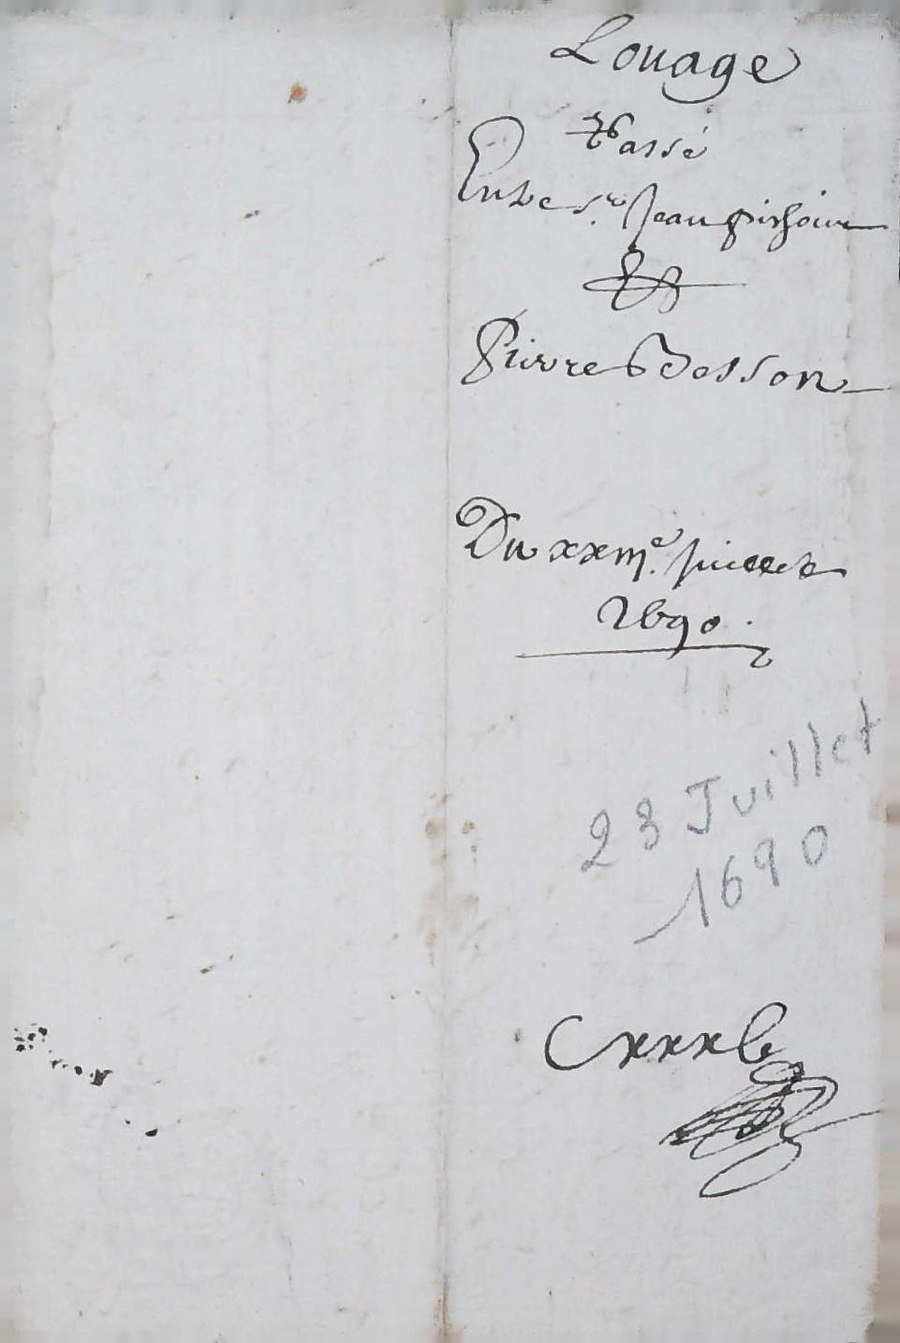 Louage
Passé
Entre s.r Jean
&
Pierre Besson
Du xxiii.e juillet
1690.
23 Juillet
1690